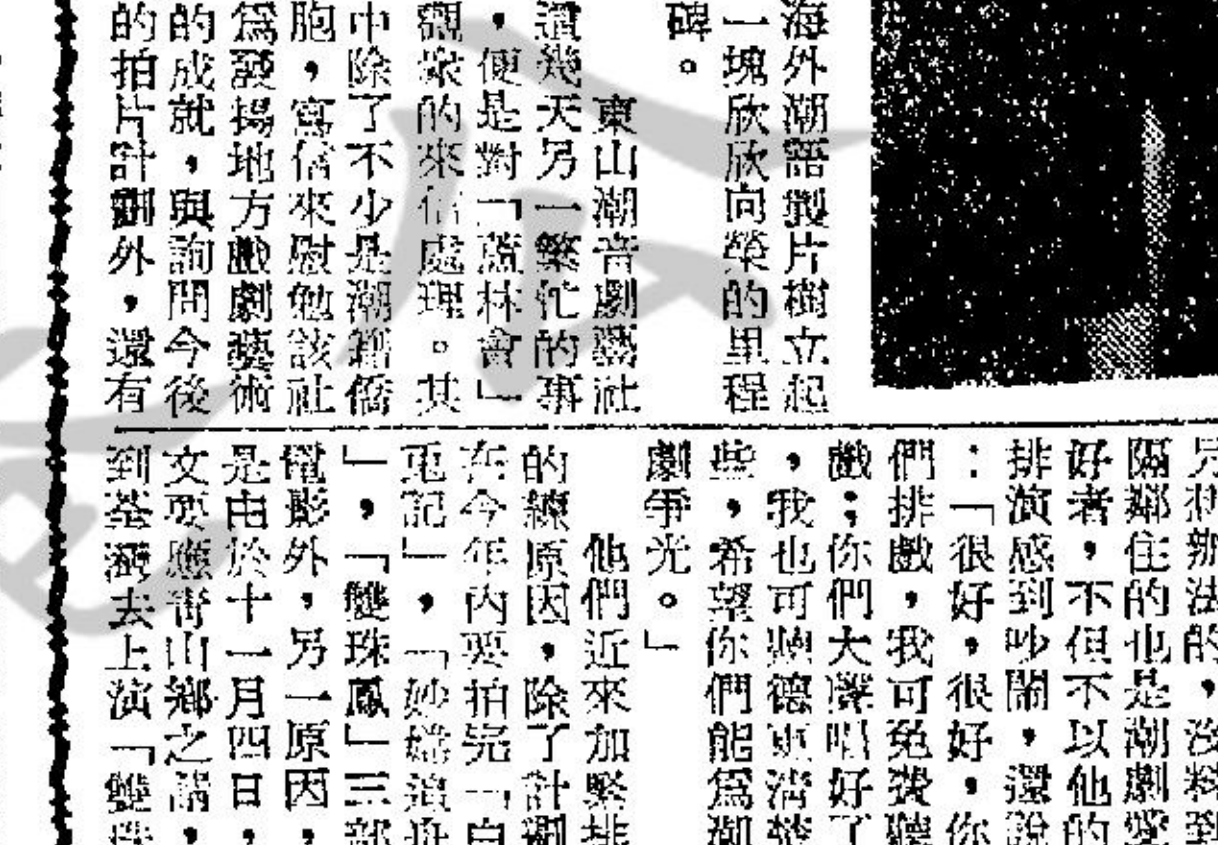 海外潮語製片樹立起
一塊欣欣向榮的里程
碑。
東山潮音劇藝社
這幾天另一繁忙的事
，便是對「藍林會」
觀衆的來信處理。其
中除了不少是潮籍僑
胞，寫信來慰勉該社
爲發揚地方戲劇藝術
的成就，與詢問今後
的拍片計劃外，還有
到新法的，沒料到
隔鄰住的也是潮劇愛
好者，不但不以他的
排演感到吵鬧，還說
：「很好，很好，你
們排戲，我可免費聽
戲；你們大聲唱好了
，我也可聽得更清楚
些，希望你們能爲潮
劇爭光。」
他們近來加緊排
的原因，除了計劃
在今年內要拍完「白
兎記」，「妙嫦追舟
」，「雙珠鳳」三部
電影外，另一原因，
是由於十一月四日，
文要應青山鄉之請，
到荃灣去上演「雙珠